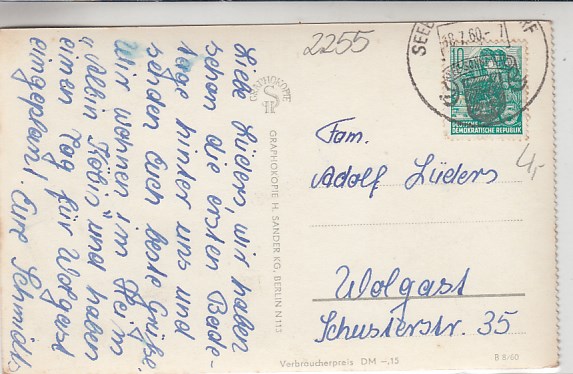 2255
Liebe Lüders, wir haben
schon die ersten Bade-
tage hinter uns und
senden Euch beste Grüße.
Wir wohnen im Heim
"Allein Köbis" und haben
einen Tag für Wolgast
eingeplant. Eure Schmidts
GRAPHOKOPIE
GRAPHOKOPIE H. SANDER KG, BERLIN N 113
SEEB
18.7.60.-
10
DEUTSCHE
DEMOKRATISCHE REPUBLIK
4,-
Fam.
Adolf Lüders
Wolgast
Schusterstr. 35
Verbraucherpreis DM -,15
B 8/60